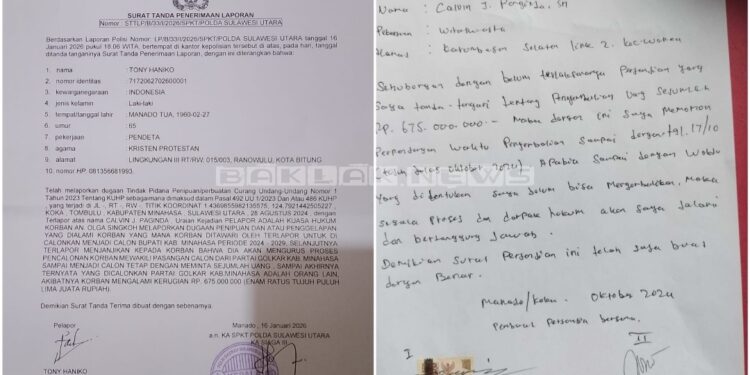 SURAT TANDA PENERIMAAN LAPORAN
Nomor : STTLP/B/33/I/2026/SPKT/POLDA SULAWESI UTARA
Berdasarkan Laporan Polisi Nomor LP/B/33/I/2026/SPKT/POLDA SULAWESI UTARA tanggal 16
Januari 2026 pukul 18.06 WITA, bertempat di kantor kepolisian tersebut di atas, pada hari, tanggal
ditandatanganinya Surat Tanda Penerimaan Laporan, dengan ini diterangkan bahwa:
1. nama : TONY HANIKO
2. nomor identitas : 7172062702600001
3. kewarganegaraan : INDONESIA
4. jenis kelamin : Laki-laki
5. tempat/tanggal lahir : MANADO TUA, 1960-02-27
6. umur : 65
7. pekerjaan : PENDETA
8. agama : KRISTEN PROTESTAN
9. alamat : LINGKUNGAN III RT/RW, 015/003, RANOWULU, KOTA BITUNG
10. nomor HP. 081356681993
Telah melaporkan dugaan Tindak Pidana Penipuan/perbuatan Curang Undang-Undang Nomor 1
Tahun 2023 Tentang KUHP sebagaimana dimaksud dalam Pasal 492 UU 1/2023 Dan Atau 486 KUHP
, yang terjadi di JL -, RT -, RW -
KOKA, TOMBULU, KABUPATEN MINAHASA, SULAWESI UTARA, 28 AGUSTUS 2024, dengan
Terlapor atas nama CALVIN J. PAGINDA, Uraian Kejadian PELAPOR ADALAH KUASA HUKUM
KORBAN AN. OLGA SINGKOH MELAPORKAN DUGAAN PENIPUAN DAN ATAU PENGGELAPAN
YANG DIALAMI KORBAN YANG MANA KORBAN DITAWARI OLEH TERLAPOR UNTUK DI
CALONKAN MENJADI CALON BUPATI KAB. MINAHASA PERIODE 2024 - 2029, SELANJUTNYA
TERLAPOR MENJANJIKAN KEPADA KORBAN BAHWA, DIA AKAN MENGURUS PROSES
PENCALONAN KORBAN MEWAKILI PASANGAN CALON DARI PARTAI GOLKAR KAB. MINAHASA
SAMPAI MENJADI CALON TETAP DENGAN MEMINTA SEJUMLAH UANG, SAMPAI AKHIRNYA
TERNYATA YANG DICALONKAN PARTAI GOLKAR KAB. MINAHASA ADALAH ORANG LAIN,
AKIBATNYA KORBAN MENGALAMI KERUGIAN RP. 675.000.000 (ENAM RATUS TUJUH PULUH
LIMA JUATA RUPIAH).
Demikian Surat Tanda Terima dibuat dengan sebenarnya.
Pelapor
TONY HANIKO
Manado, 16 Januari 2026
a.n. KA SPKT POLDA SULAWESI UTARA
KA SIAGA III
BAKLAK NEWS
Nama : Calvin J.
Pekerjaan : Wiraswasta
Alamat : Kalumbasan Selatan link 2.
Sehubungan dengan belum terlaksananya Perjanjian yang
Saya tanda-tangani tentang Pengembalian Uang sejumlah
Rp. 675.000.000.- Maka dengan ini Saya Memohon
Perpanjangan Waktu Pengembalian Sampai dengan tgl, 17/10
(tujuh belas oktober 2024). Apabila Sampai dengan Waktu
yang di tentukan saya belum bisa Mengembalikan, Maka
segala Proses dan dampak hukum akan saya jalani
dan bertanggung jawab.
Demikian Surat Perjanjian ini telah saya buat
dengan Benar.
Manado/Koka. Oktober 2024
Pembuat Perjanjian bersama.
I
II